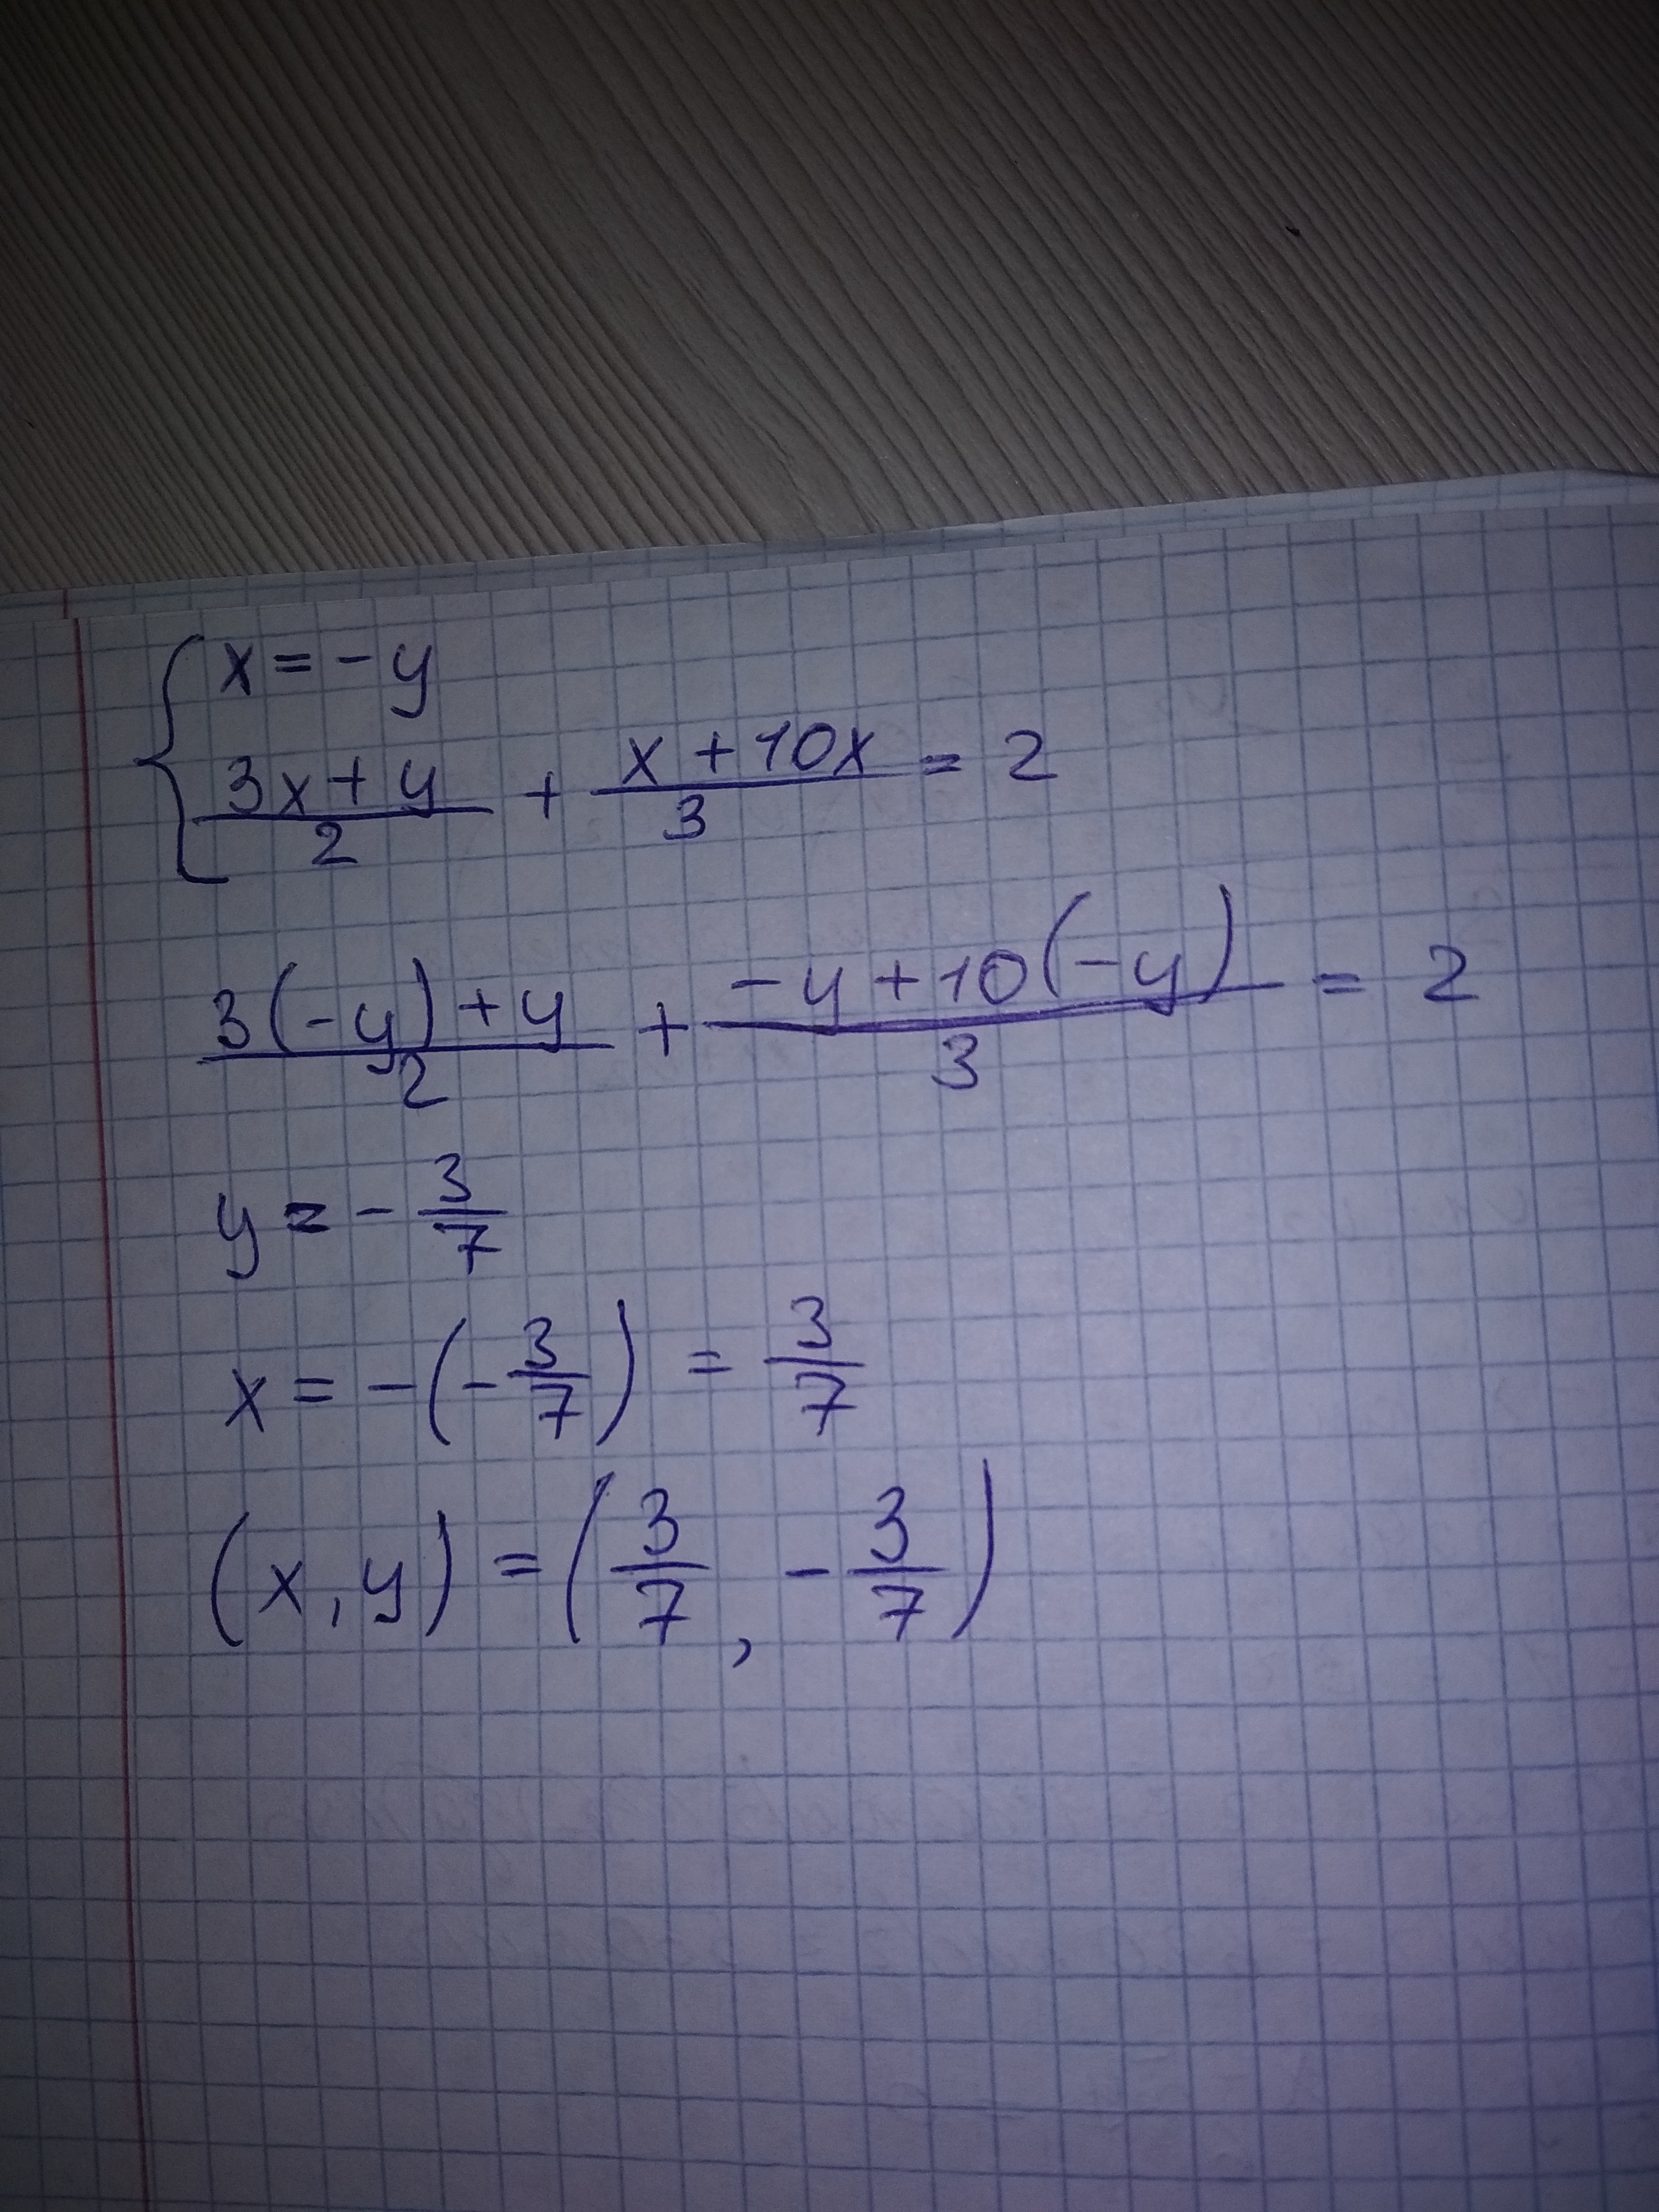 { x = -y
(3x + y)/2 + (x + 10x)/3 = 2
(3(-y) + y)/2 + (-y + 10(-y))/3 = 2
y = -3/7
x = -(-3/7) = 3/7
(x, y) = (3/7, -3/7)